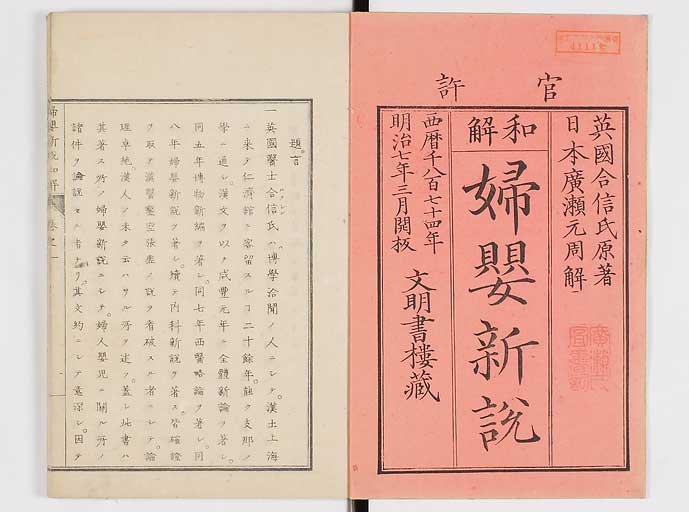 官許
英國合信氏原著
日本廣瀬元周解
和解
婦嬰新説
西曆千八百七十四年
明治七年三月開板
文明書樓藏
題言
一英國醫士合信氏ハ博學洽聞ノ人ニシテ。漢土上海
ニ來テ仁濟館ニ客留スルコ二十餘年。能ク支那ノ
學ニ通シ。漢文ヲ以テ咸豐元年ニ全體新論ヲ著シ。
同五年博物新編ヲ著シ。同七年西醫略論ヲ著シ。同
八年婦嬰新説ヲ著シ。續テ内科新説ヲ著ス。皆確證
ヲ取テ漢醫鑿空張虛ノ説ヲ看破スル者ニシテ論
理卓絶。漢人ノ未タ云ハサル所ヲ述フ。蓋シ此書ハ
其著ス所ノ婦嬰新説ニシテ。婦人嬰兒ニ關ル所ノ
諸件ヲ論説スル者ナリ。其文約ニシテ意深シ。因テ
婦嬰新説和解 卷之一